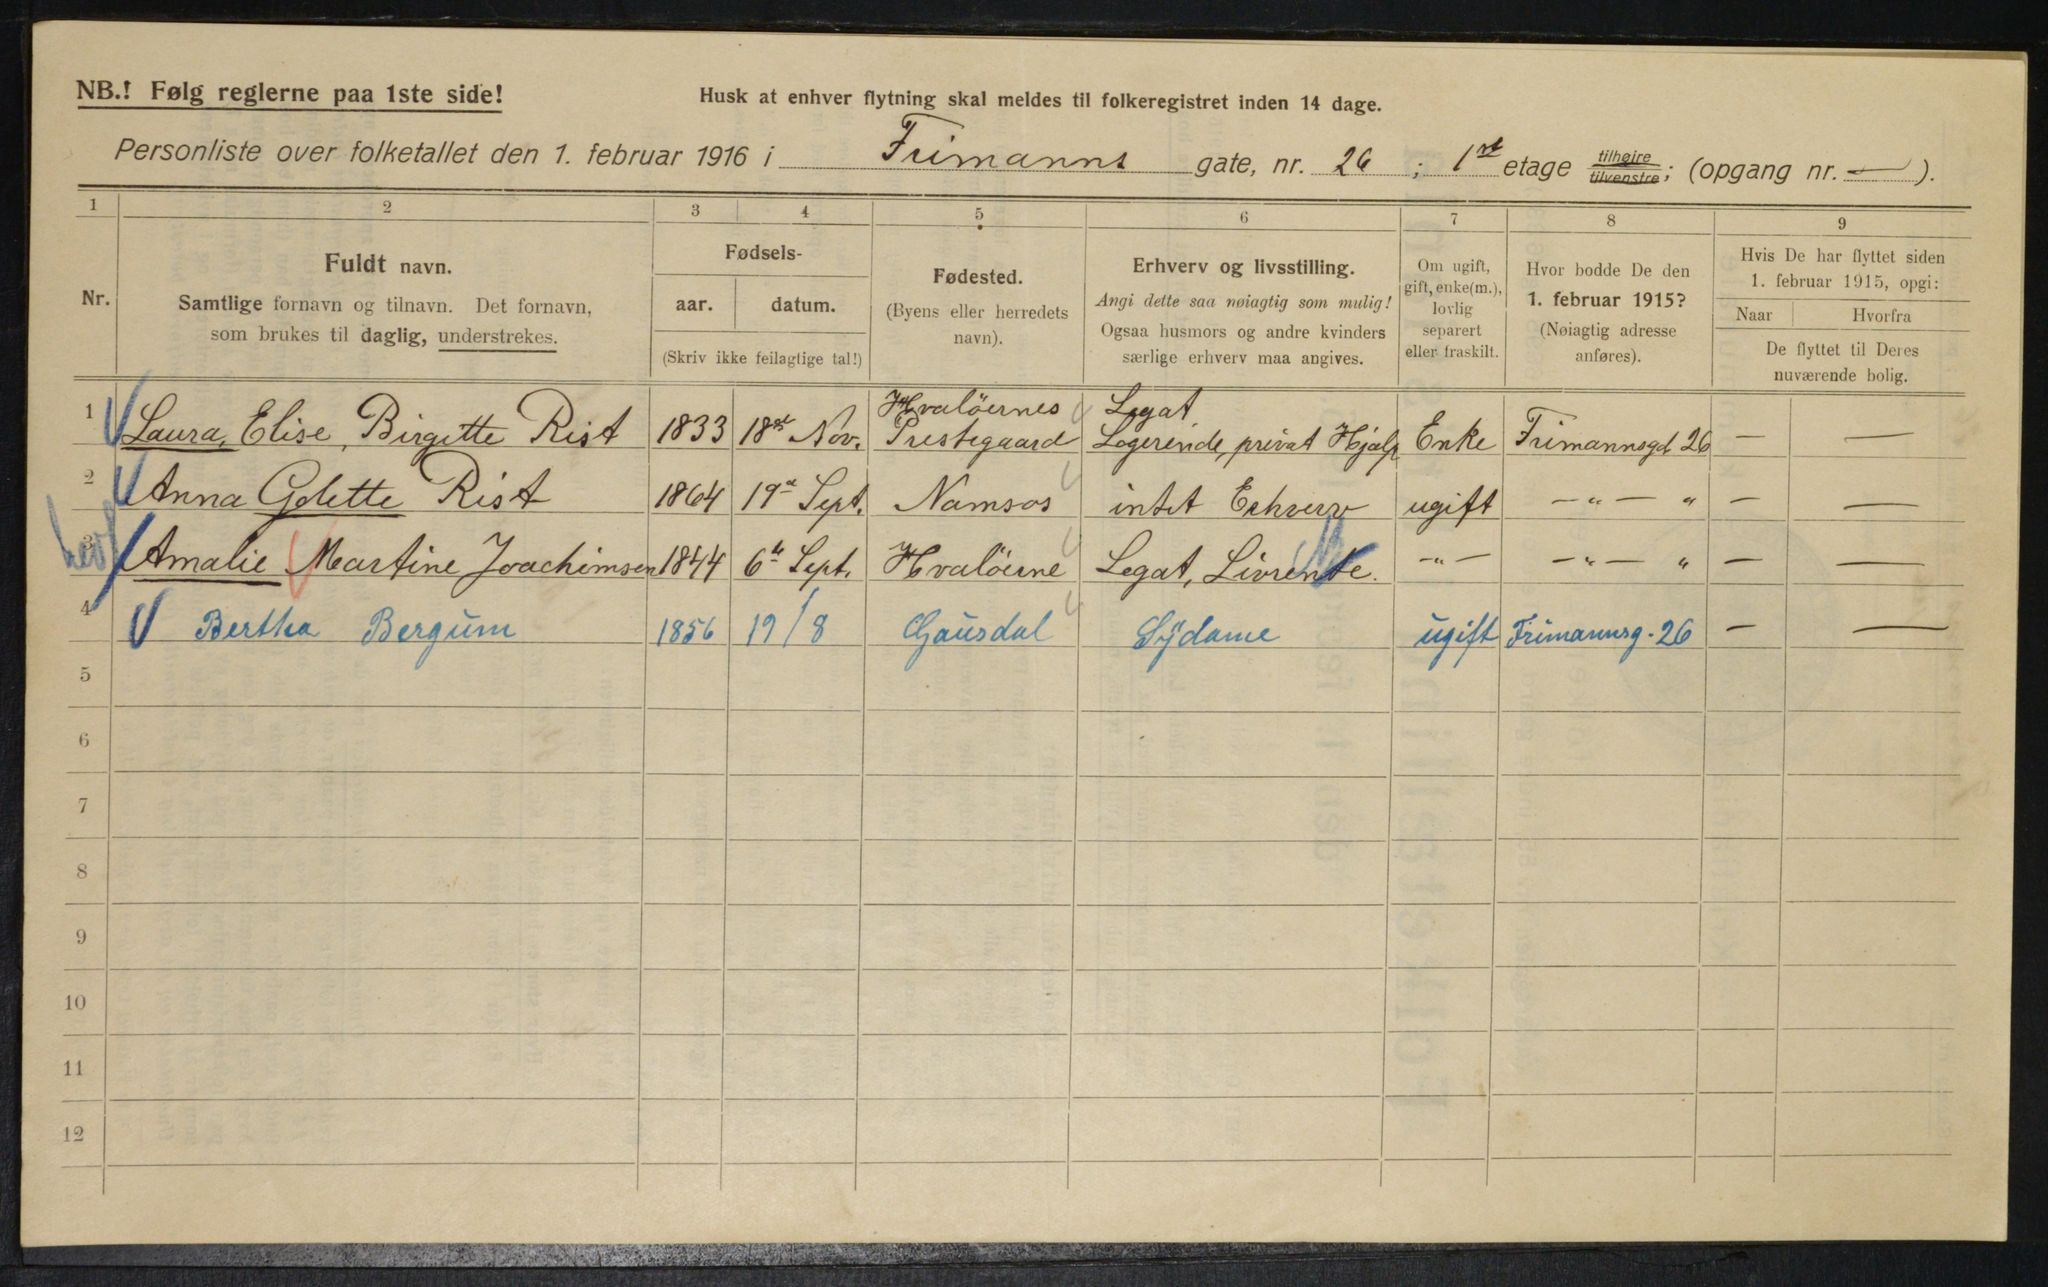 NB.! Følg reglerne paa 1ste side!
Husk at enhver flytning skal meldes til folkeregistret inden 14 dage.
Personliste over folketallet den 1. februar 1916 i Frimanns gate, nr. 26 ; 1ste etage tilhøire tilvenstre; (opgang nr. — ).
1 2 3 4 5 6 7 8 9
Nr.
Fuldt navn.
Samtlige fornavn og tilnavn. Det fornavn,
som brukes til daglig, understrekes.
Fødsels-
aar. datum.
(Skriv ikke feilagtige tal!)
Fødested.
(Byens eller herredets
navn).
Erhverv og livsstilling.
Angi dette saa nøiagtig som mulig!
Ogsaa husmors og andre kvinders
særlige erhverv maa angives.
Om ugift,
gift, enke(m.),
lovlig
separert
eller fraskilt.
Hvor bodde De den
1. februar 1915?
(Nøiagtig adresse
anføres).
Hvis De har flyttet siden
1. februar 1915, opgi:
Naar Hvorfra
De flyttet til Deres
nuværende bolig.
1 Laura, Elise, Birgitte Rist 1833 18de Nov. Hvalöernes Prestegaard Legat Logerende, privat Hjælp Enke Frimannsgd 26 — —
2 Anna Golette Rist 1864 19de Sept. Namsos intet Erhverv ugift — " — " — —
3 Amalie Martine Joachimsen 1844 6te Sept. Hvalöerne Legat, Livrente. — " — — " — " — —
4 Bertha Bergum 1856 19/8 Gausdal Sydame ugift Frimannsg. 26 — —
5
6
7
8
9
10
11
12